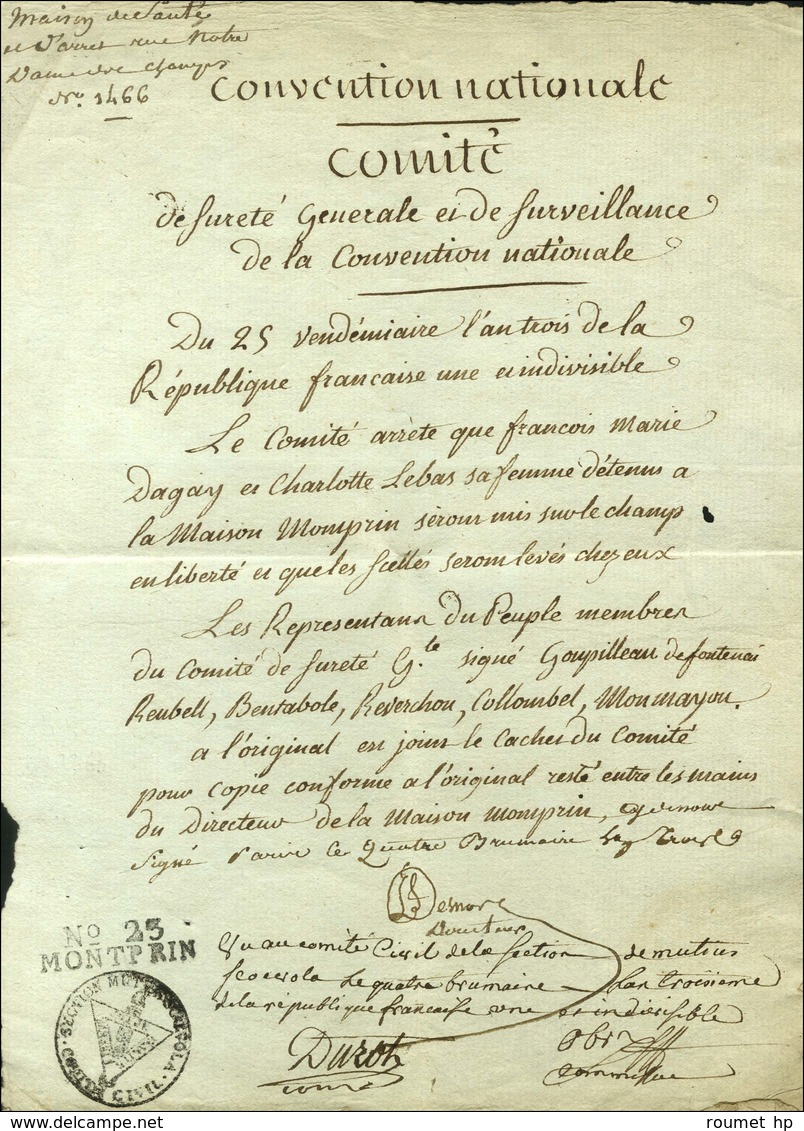 Maison de Santé
et d'arret rue Notre
Dame des Champs
No. 1466
Convention nationale
Comité
de Sureté Generale et de Surveillance
de la Convention nationale
Du 25 Vendémiaire l'an trois de la
République francaise une et indivisible
Le Comité arrète que francois Marie
Dagay et Charlotte Lebas sa femme détenus a
la Maison Momprin séront mis sur le champ
en liberté et que les Scellés seront levés chez eux
Les Representans du Peuple membres
du Comité de Sureté G.le signé Goupilleau de fontenai
Reubell, Bentabole, Reverchon, Collombel, Monmayou.
a l'original est joint le Cachet du Comité
pour copie conforme a l'original resté entre les mains
du Directeur de la Maison momprin,
Signé Paris le Quatre Brumaire
Directeur
Vu au comité Civil de la Section de mutius
Scaevola le quatre brumaire Lan troisieme
de la république francaise une et indivisible
No 23
MONTPRIN
COMITÉ CIVIL. SECTION MUTIUS SCAEVOLA.
Durot
comre